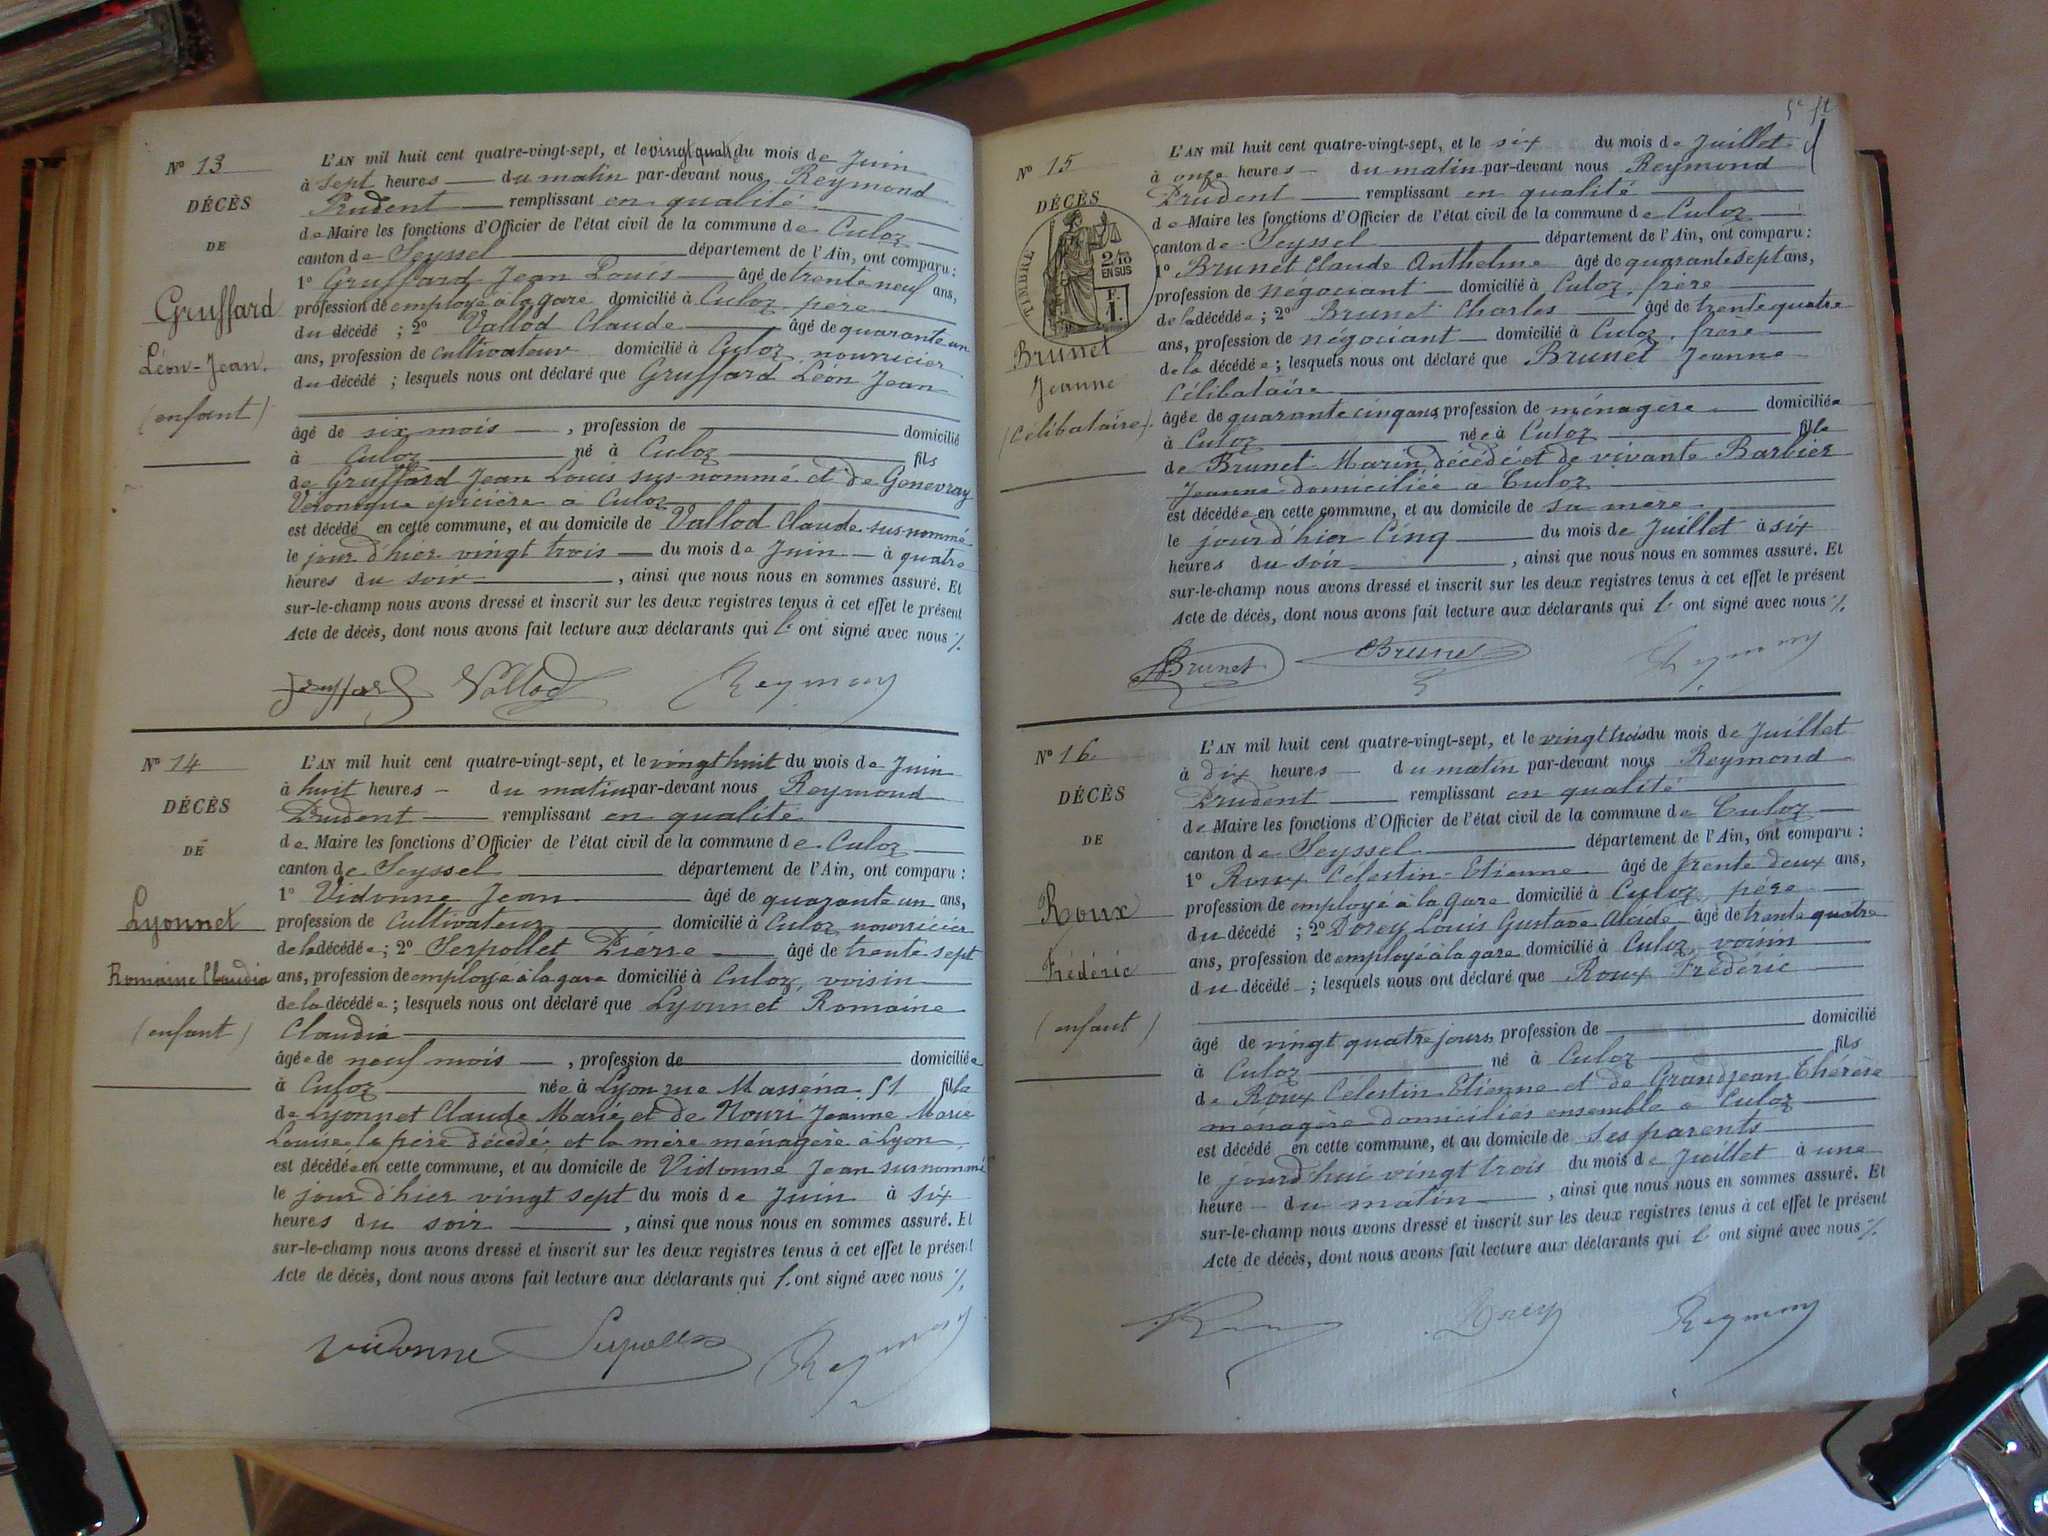 N° 13
DÉCÈS
DE
Gruffard
Léon-Jean
(enfant)
L'AN mil huit cent quatre-vingt-sept, et le vingt quatre du mois de Juin
à sept heures du matin par-devant nous Reymond
Prudent remplissant en qualité
de Maire les fonctions d'Officier de l'état civil de la commune de Culoz
canton de Seyssel département de l'Ain, ont comparu :
1° Gruffard Jean Louis âgé de trente neuf ans,
profession de employé à la gare domicilié à Culoz, père
du décédé ; 2° Vallod Claude âgé de quarante un
ans, profession de cultivateur domicilié à Culoz nourricier
du décédé ; lesquels nous ont déclaré que Gruffard Léon Jean
âgé de six mois , profession de domicilié
à Culoz né à Culoz fils
de Gruffard Jean Louis sus-nommé et de Genevray
Véronique épicière à Culoz
est décédé en cette commune, et au domicile de Vallod Claude susnommé
le jour d'hier vingt trois du mois de Juin à quatre
heures du soir , ainsi que nous nous en sommes assuré. Et
sur-le-champ nous avons dressé et inscrit sur les deux registres tenus à cet effet le présent
Acte de décès, dont nous avons fait lecture aux déclarants qui l'ont signé avec nous ./.
Gruffard Vallod Reymond
N° 14
DÉCÈS
DE
Lyonnet
Romaine Claudia
(enfant)
L'AN mil huit cent quatre-vingt-sept, et le vingt huit du mois de Juin
à huit heures du matin par-devant nous Reymond
Prudent remplissant en qualité
de Maire les fonctions d'Officier de l'état civil de la commune de Culoz
canton de Seyssel département de l'Ain, ont comparu :
1° Vidonne Jean âgé de quarante un ans,
profession de Cultivateur domicilié à Culoz nourricier
de la décédée ; 2° Serpollet Pierre âgé de trente sept
ans, profession de employé à la gare domicilié à Culoz, voisin
de la décédée ; lesquels nous ont déclaré que Lyonnet Romaine
Claudia
âgée de neuf mois , profession de domiciliée
à Culoz née à Lyon rue Masséna 51 fille
de Lyonnet Claude Marie et de Nouri Jeanne Marie
Louise le père décédé, et la mère ménagère à Lyon
est décédée en cette commune, et au domicile de Vidonne Jean susnommé
le jour d'hier vingt sept du mois de Juin à six
heures du soir , ainsi que nous nous en sommes assuré. Et
sur-le-champ nous avons dressé et inscrit sur les deux registres tenus à cet effet le présent
Acte de décès, dont nous avons fait lecture aux déclarants qui l'ont signé avec nous ./.
Vidonne Serpollet Reymond
5e ft
N° 15
DÉCÈS
TIMBRE
2/10
EN SUS
F.
1.
Brunet
Jeanne
(célibataire)
L'AN mil huit cent quatre-vingt-sept, et le six du mois de Juillet
à onze heures du matin par-devant nous Reymond
Prudent remplissant en qualité
de Maire les fonctions d'Officier de l'état civil de la commune de Culoz
canton de Seyssel département de l'Ain, ont comparu :
1° Brunet Claude Anthelme âgé de quarante sept ans,
profession de négociant domicilié à Culoz, frère
de la décédée ; 2° Brunet Charles âgé de trente quatre
ans, profession de négociant domicilié à Culoz, frère
de la décédée ; lesquels nous ont déclaré que Brunet Jeanne
célibataire
âgée de quarante cinq ans, profession de ménagère domiciliée
à Culoz née à Culoz fille
de Brunet Marin décédé et de vivante Barbier
Jeanne domiciliée à Culoz
est décédée en cette commune, et au domicile de sa mère
le jour d'hier Cinq du mois de Juillet à six
heures du soir , ainsi que nous nous en sommes assuré. Et
sur-le-champ nous avons dressé et inscrit sur les deux registres tenus à cet effet le présent
Acte de décès, dont nous avons fait lecture aux déclarants qui l'ont signé avec nous ./.
Brunet Brunet Reymond
N° 16
DÉCÈS
DE
Roux
Frédéric
(enfant)
L'AN mil huit cent quatre-vingt-sept, et le vingt trois du mois de Juillet
à dix heures du matin par-devant nous Reymond
Prudent remplissant en qualité
de Maire les fonctions d'Officier de l'état civil de la commune de Culoz
canton de Seyssel département de l'Ain, ont comparu :
1° Roux Célestin Etienne âgé de trente deux ans,
profession de employé à la gare domicilié à Culoz, père
du décédé ; 2° Dorey Louis Gustave Alcide âgé de trente quatre
ans, profession de employé à la gare domicilié à Culoz, voisin
du décédé ; lesquels nous ont déclaré que Roux Frédéric
âgé de vingt quatre jours, profession de domicilié
à Culoz né à Culoz fils
de Roux Célestin Etienne et de Grandjean Thérèse
ménagère domiciliés ensemble à Culoz
est décédé en cette commune, et au domicile de ses parents
le jourd'hui vingt trois du mois de Juillet à une
heure du matin , ainsi que nous nous en sommes assuré. Et
sur-le-champ nous avons dressé et inscrit sur les deux registres tenus à cet effet le présent
Acte de décès, dont nous avons fait lecture aux déclarants qui l'ont signé avec nous ./.
Dorey Reymond